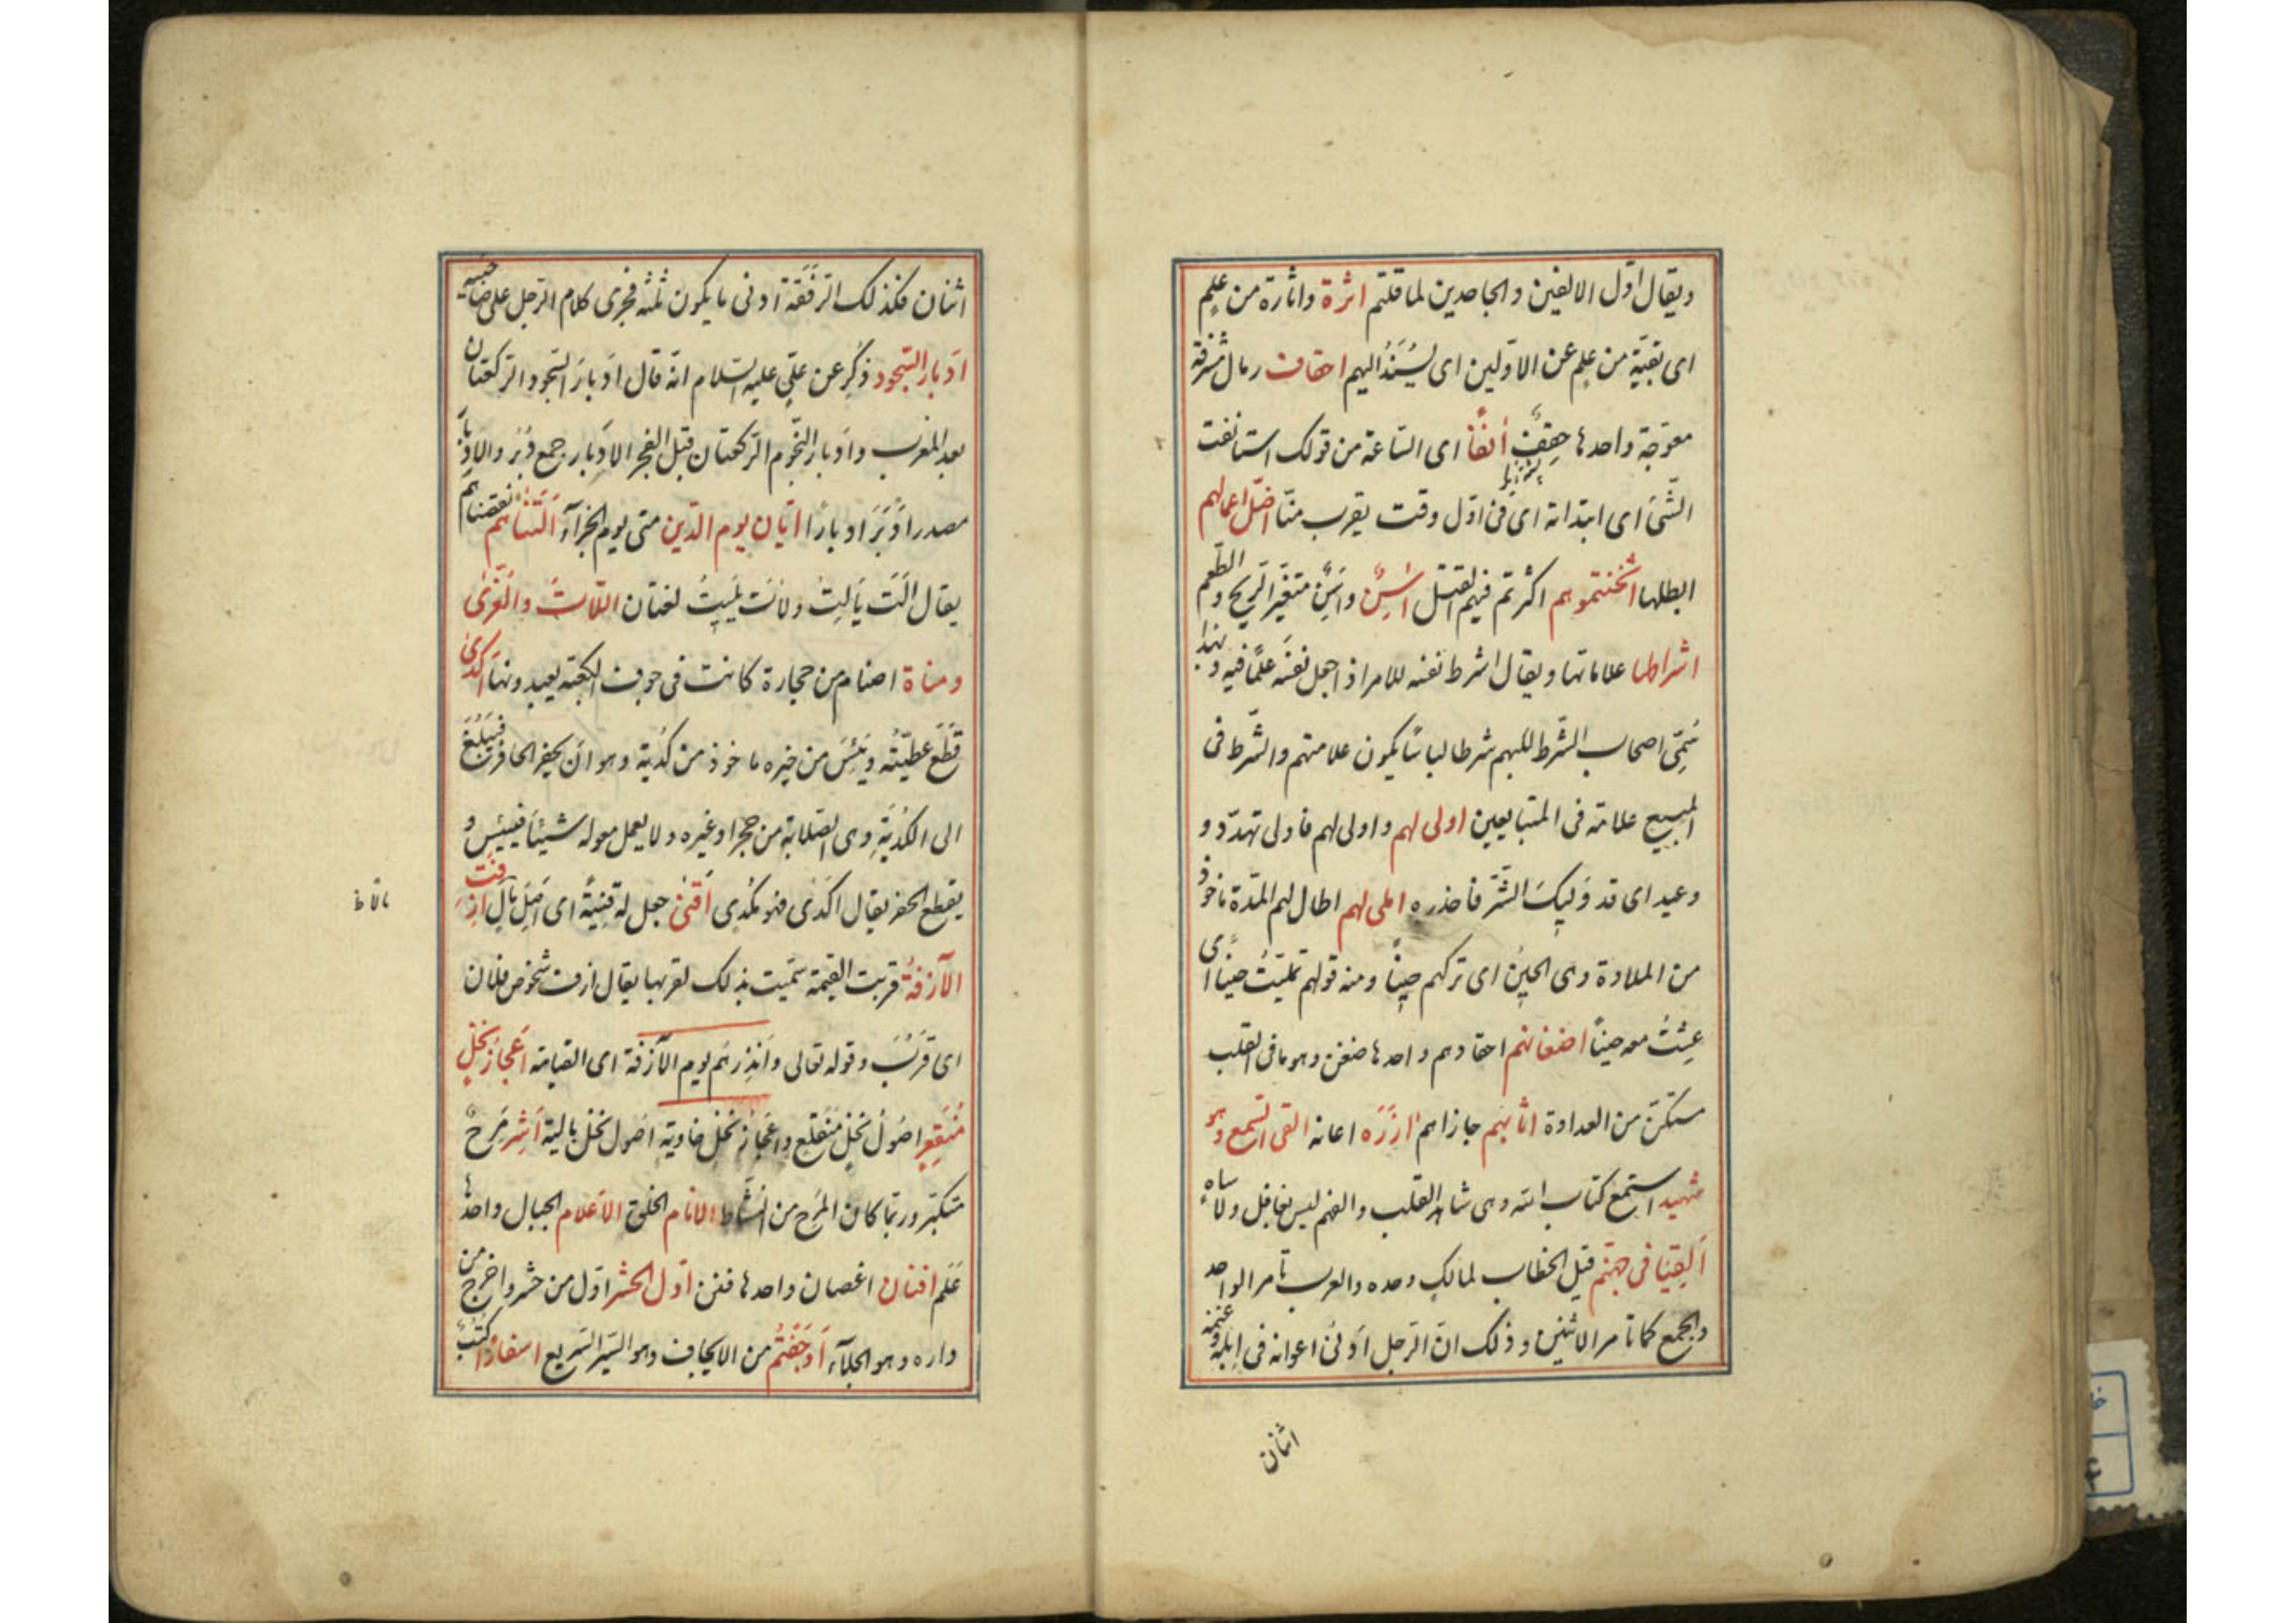 ويقال اوّل الآنفين والجاحدين لما قلتم اثرة واثارة من علم
اى بقيّة من علم عن الاوّلين اى يُسنَدُ اليهم احقاف رمال مشرفة
معوجّة واحدها حِقفٌ أنفًا اى السّاعة من قولك استانفت
الشّئ اى ابتداته اى فى اوّل وقت يقرب منّا اضلّ اعمالهم
ابطلها اثخنتموهم اكثرتم فيهم القتل اسِنٌ واسِنٌ متغيّر الريح والطّعم
اشراطها علاماتها ويقال اشرط نفسه للامر اذا جعل نفسَه علمًا فيه وبهذا
سُمّى اصحاب الشّرط للبسهم شرطا لباسًا يكون علامتهم والشّرط فى
المبيع علامة فى المتبايعين اولى لهم واولى لهم فاولى تهدّد و
وعيد اى قد وَلِيكَ الشّر فاحذره املى لهم اطال لهم المدّة ماخوذ
من الملاوة وهى الحِينُ اى تركهم حِينًا ومنه قولهم تملّيتُ حينًا اى
عِشْتُ معه حينًا اضغانهم احقادهم واحدها ضغن وهو ما فى القلب
مستكنّ من العداوة اثابهم جازاهم ازَرَه اعانه القى السّمع وهو
شهيد استمع كتاب الله وهى شاهد القلب والفهم ليس بغافل ولا ساهٍ
اَلقِيَا فى جهنّم قيل الخطاب لمالكٍ وحده والعرب تأمر الواحد
والجمع كما تامر الاثنين وذلك انّ الرّجل ادنى اعوانه فى اِبله وغنمه
اثنان
اثنان فكذلك الرّفقة ادنى ما يكون ثلثه فجرى كلام الرّجل على صاحبيه
اَدبار السّجود ذُكِر عن علىّ عليه السلام انّه قال اَدبارَ السّجود الرّكعتان
بعد المغرب واَدبار النّجوم الرّكعتان قبل الفجر الاَدبار جمع دُبُر والاِدبار
مصدر اَدبَرَ ادبارًا ايّان يوم الدّين متى يوم الجزآء اَلَتْنَاهم نقصناهم
يقال اَلَتَ يَألِتُ ولاَتَ يَلِيتُ لغتان اللّاتَ والْعُزّى
ومناة اصنام من حجارة كانت فى جوف الكعبة يعبدونها اكدى
قَطَع عطيّتُه ويَئِسَ من خيره ماخوذ من كُديَة وهو ان يحفر الحافر فَيَبْلُغَ
الى الكُديَةِ وهى الصّلابة من حجر او غيره ولا يعمل معوله شيئًا فييئس و
يقطع الحفر يقال اكدى فهو مُكدى اَقنى جعل له قِنيَةً اى اَصلَ مالٍ اَزِفَتِ
الآزفةُ قربت القيمة سمّيت بذلك لقربها يقال ازف شخوص فلان
اى قَرُبَ وقوله تعالى واَنذِرهُم يوم الآزفة اى القيامة اَعجازُ نخلٍ
مُنقعِرٍ اصُولُ نخلٍ منقلعٍ واَعجازُ نخلٍ خاويةٍ اصول نخل بالية اَشِر مَرِحٌ
متكبّر وربّما كان المَرَح من النّشاط الانام الخلق الاَعلام الجبال واحدها
عَلَم افنان اغصان واحدها فنن اوّل الحشر اوّل من حشر واخرج من
داره وهو الجلآء اَوجَفتُم من الايجاف وهو السّير السّريع اسفارًا كُتُبٌ